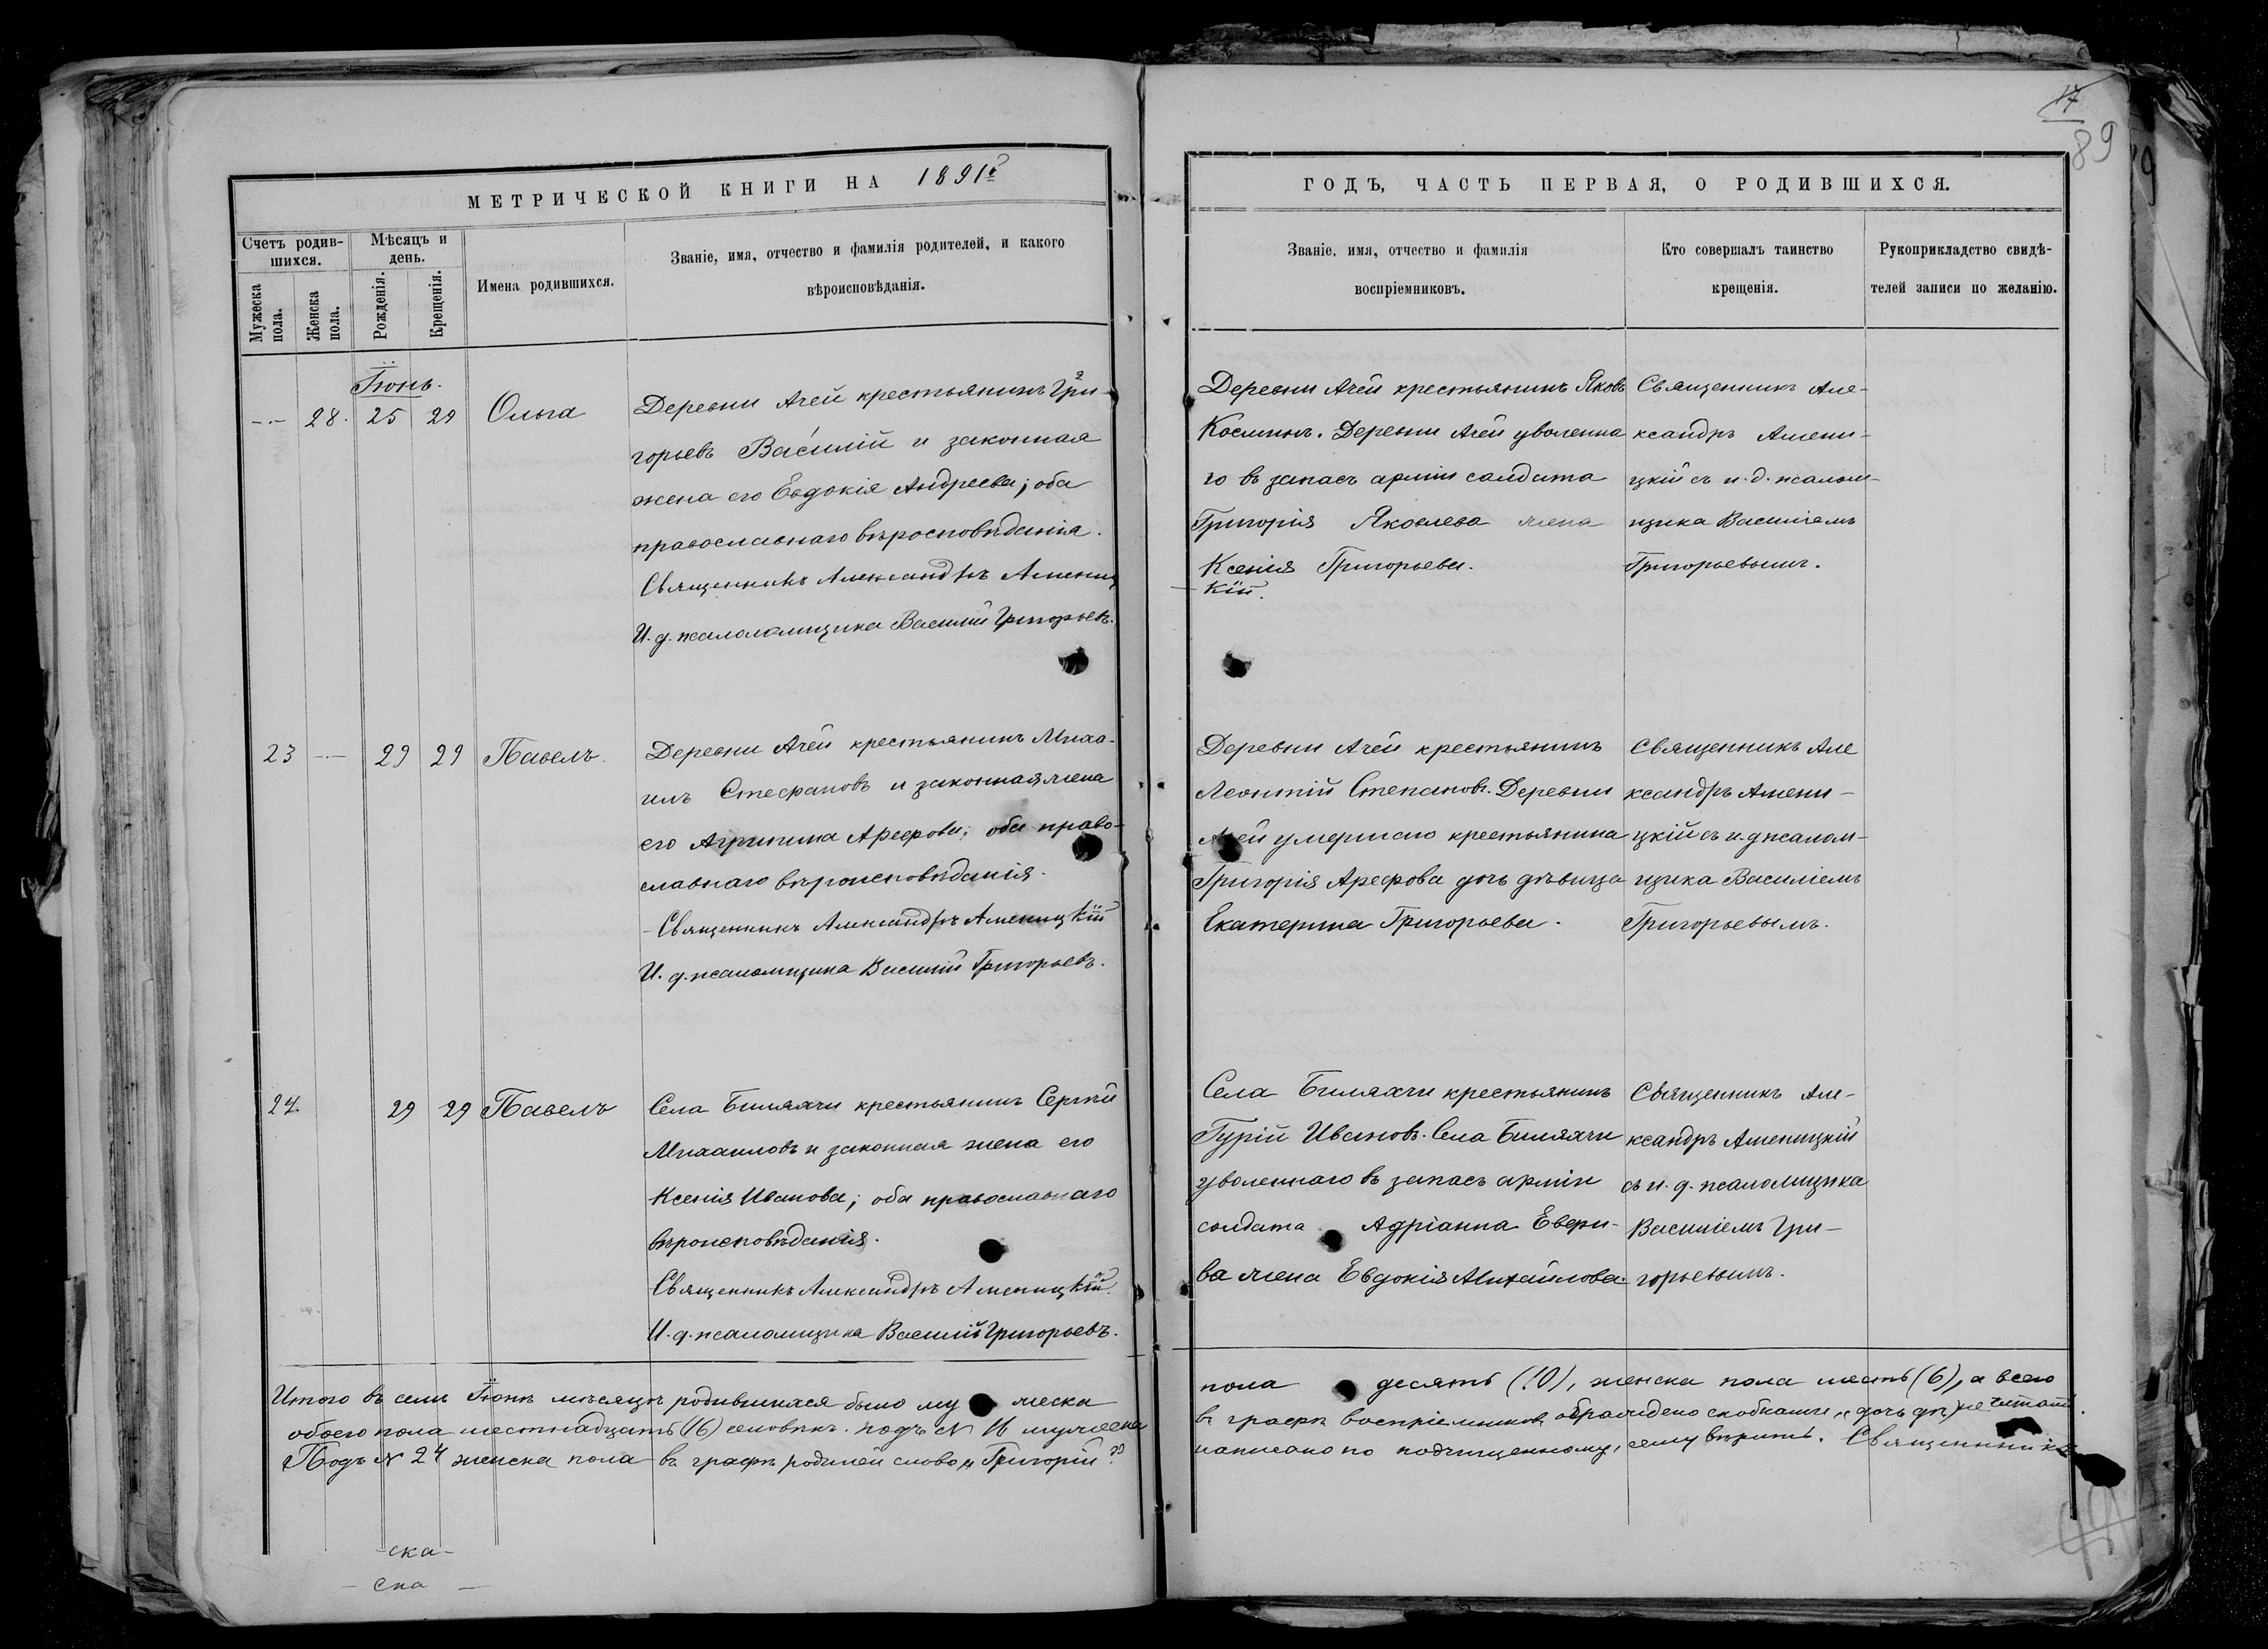 17
89
МЕТРИЧЕСКОЙ КНИГИ НА 1891й
ГОДЪ, ЧАСТЬ ПЕРВАЯ, О РОДИВШИХСЯ.
Счетъ родив-
шихся.
Мужеска
пола.
Женска
пола.
Мѣсяцъ и
день.
Рожденія.
Крещенія.
Имена родившихся.
Званіе, имя, отчество и фамилія родителей, и какого
вѣроисповѣданія.
Званіе, имя, отчество и фамилія
воспріемниковъ.
Кто совершалъ таинство
крещенія.
Рукоприкладство свидѣ-
телей записи по желанію.
Іюнь.
28. 25 29 Ольга
Деревни Ачей крестьянинъ Гри-
горьевъ Василій и законная
жена его Евдокія Андреева; оба
православнаго вѣросповѣданія.
Священникъ Александръ Амениц
И. д. псаломщика Василій Григорьевъ.
Деревни Ачей крестьянинъ Яковъ
Косминъ. Деревни Ачей уволенна
го въ запасъ арміи солдата
Григорія Яковлева жена
Ксенія Григорьева.
кій.
Священникъ Але-
ксандръ Амени-
цкій съ и. д. псалом-
щика Василіемъ
Григорьевымъ.
23 29 29 Павелъ.
Деревни Ачей крестьянинъ Миха-
илъ Стефановъ и законная жена
его Агрипина Арефова; оба право-
славнаго вѣроисповѣданія.
Священникъ Александръ Аменицкій
И. д. псаломщика Василій Григорьевъ.
Деревни Ачей крестьянинъ
Леонтій Степановъ. Деревни
Ачей умершаго крестьянина
Григорія Арефова дочь дѣвица
Екатерина Григорьева.
Священникъ Але
ксандръ Амени-
цкій съ и. д псалом-
щика Василіемъ
Григорьевымъ.
24. 29 29 Павелъ
Села Биляхчи крестьянинъ Сергій
Михаиловъ и законная жена его
Ксенія Иванова; оба православнаго
вѣроисповѣданія.
Священникъ Александръ Аменицкій.
И. д. псаломщика Василій Григорьевъ.
Села Биляхчи крестьянинъ
Гурій Ивановъ. Села Биляхчи
уволеннаго въ запасъ арміи
солдата Адріанна Евери-
ва жена Евдокія Михайлова.
Священникъ Але-
ксандръ Аменицкій
съ и. д. псаломщика
Василіемъ Гри-
горьевымъ.
Итого въ семъ Іюнѣ мѣсяцѣ родившихся было му жеска
пола десять (10), женска пола шесть (6), а всего
обоего пола шестнадцать (16) человѣкъ. подъ № 16 мужеска
въ графѣ воспріемниковъ ограждено скобками „дочь дѣ) не читать.
Подъ № 24 женска пола въ графѣ родителей слово „Григорій"
написано по подчищенному, сему вѣрить. Священникъ
-ска-
- ска -